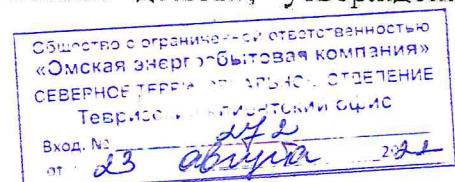 Общество с ограниченной ответственностью
«Омская энергосбытовая компания»
СЕВЕРНОЕ ТЕРРИТОРИАЛЬНОЕ ОТДЕЛЕНИЕ
Тевризский клиентский офис
Вход. № 272
от 23 августа 2022